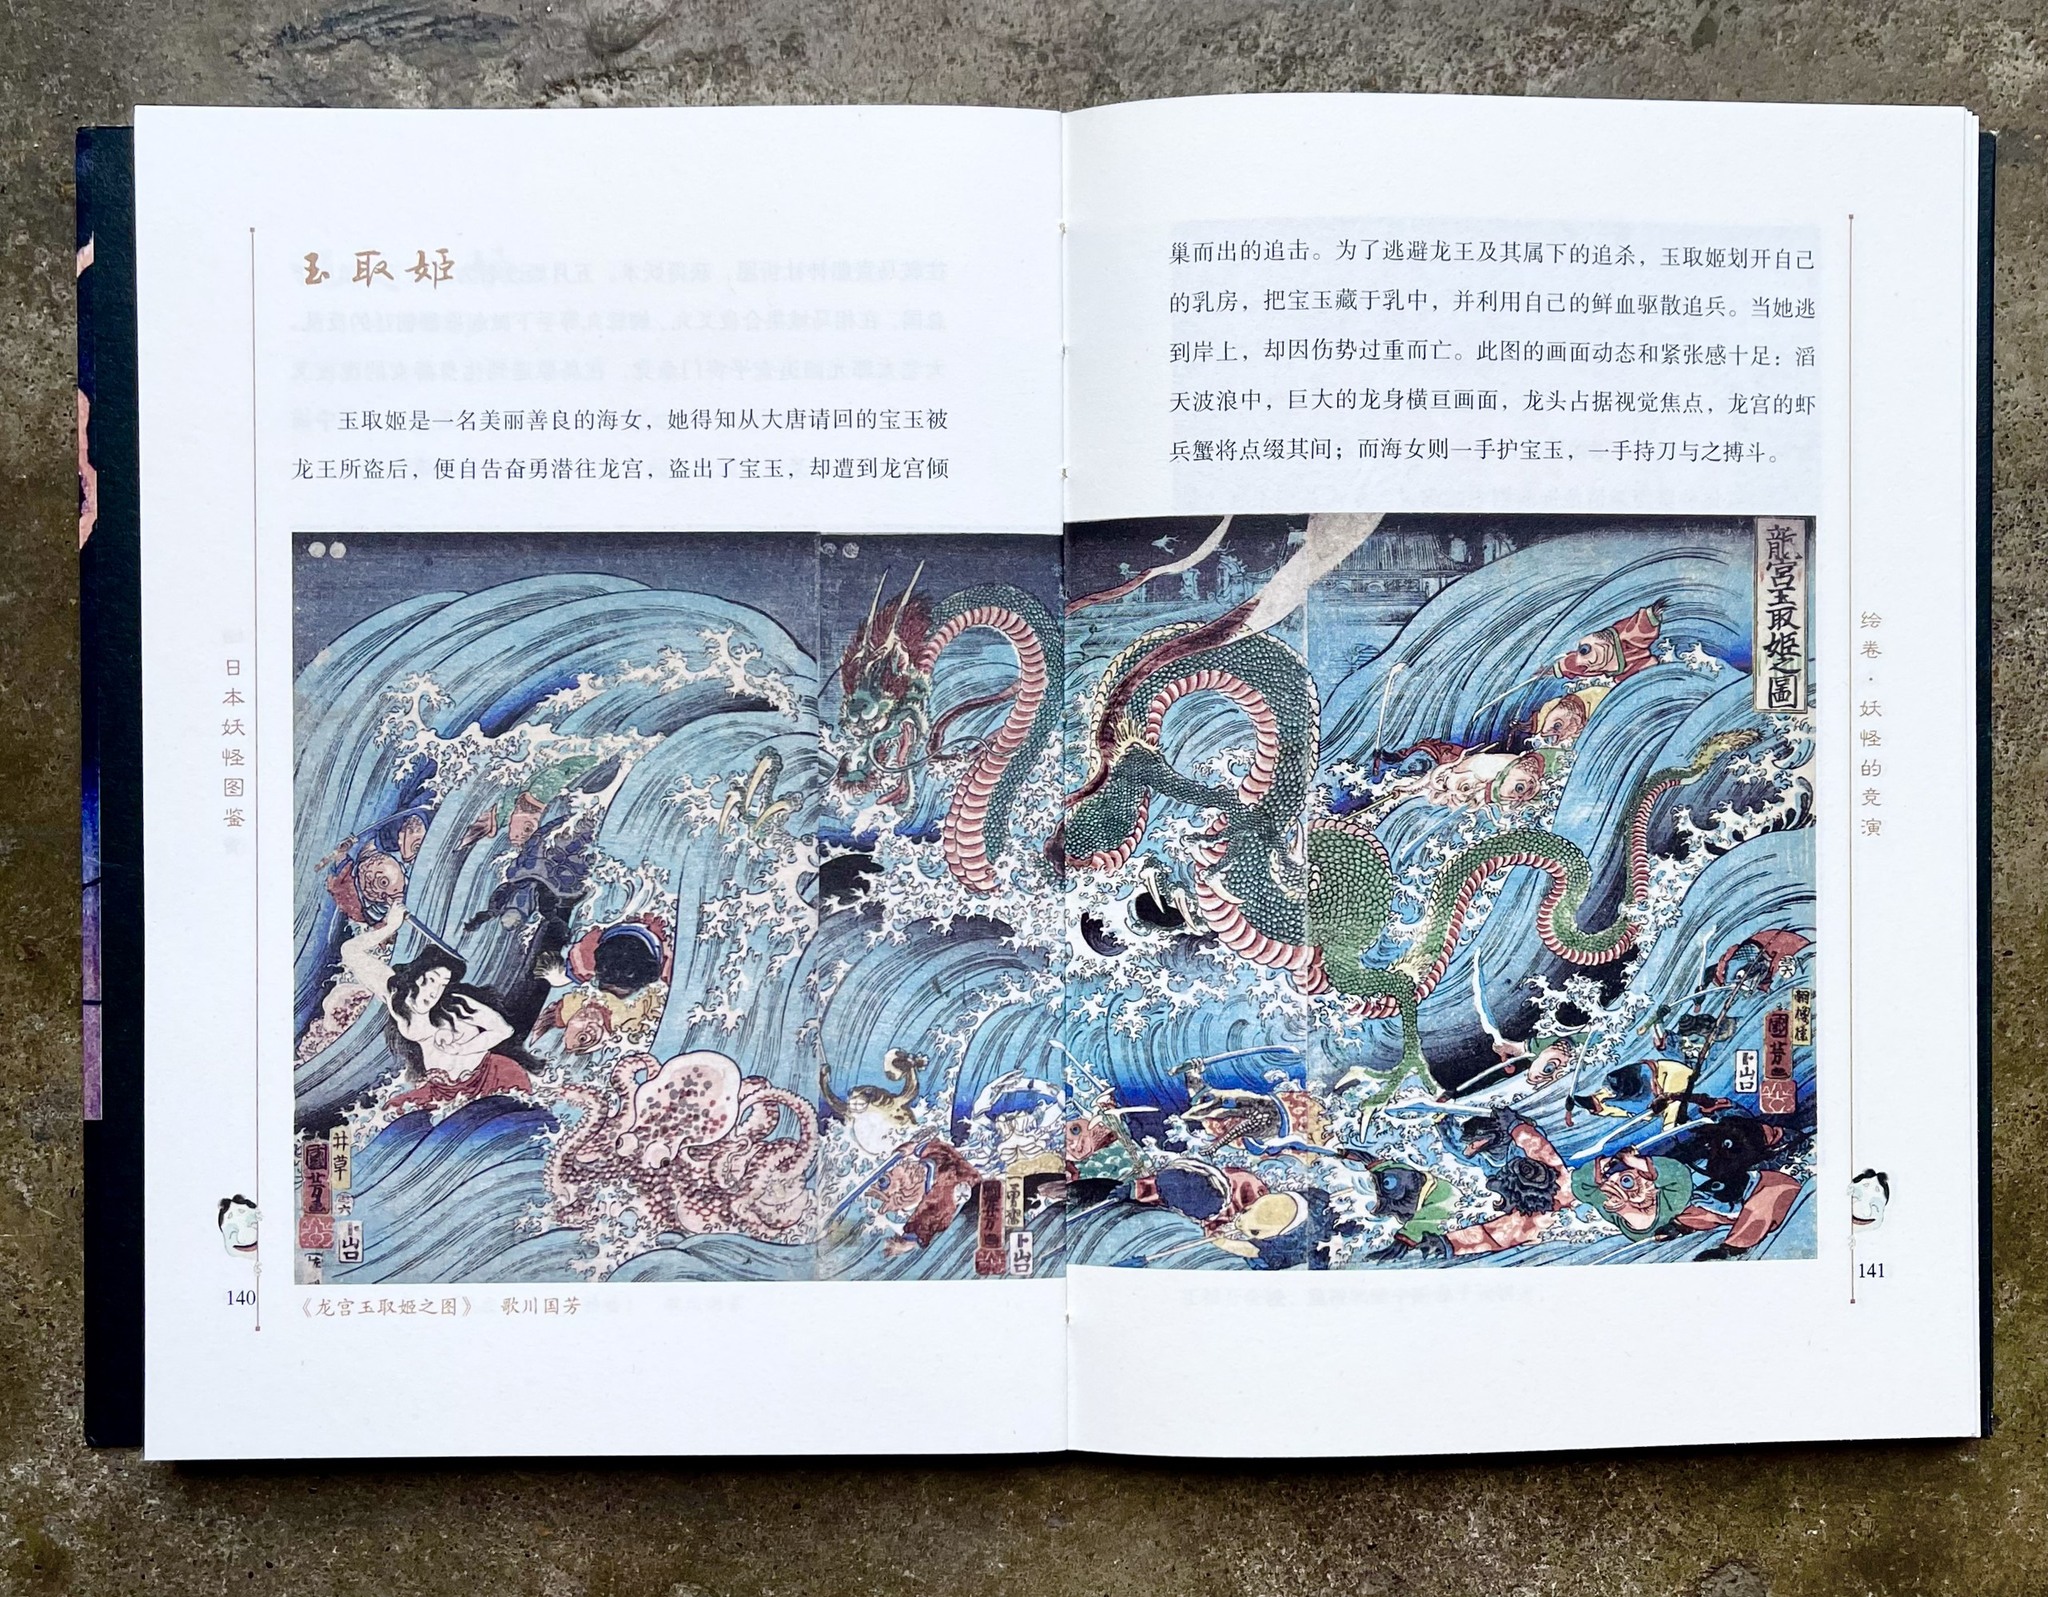 玉取姬
玉取姬是一名美丽善良的海女，她得知从大唐请回的宝玉被
龙王所盗后，便自告奋勇潜往龙宫，盗出了宝玉，却遭到龙宫倾
日本妖怪图鉴
井草
國芳画
山口
一勇斎
國芳画
山口
140
《龙宫玉取姬之图》 歌川国芳
巢而出的追击。为了逃避龙王及其属下的追杀，玉取姬划开自己
的乳房，把宝玉藏于乳中，并利用自己的鲜血驱散追兵。当她逃
到岸上，却因伤势过重而亡。此图的画面动态和紧张感十足：滔
天波浪中，巨大的龙身横亘画面，龙头占据视觉焦点，龙宫的虾
兵蟹将点缀其间；而海女则一手护宝玉，一手持刀与之搏斗。
龍宮玉取姬之圖
朝櫻楼
國芳画
山口
绘卷·妖怪的竞演
141